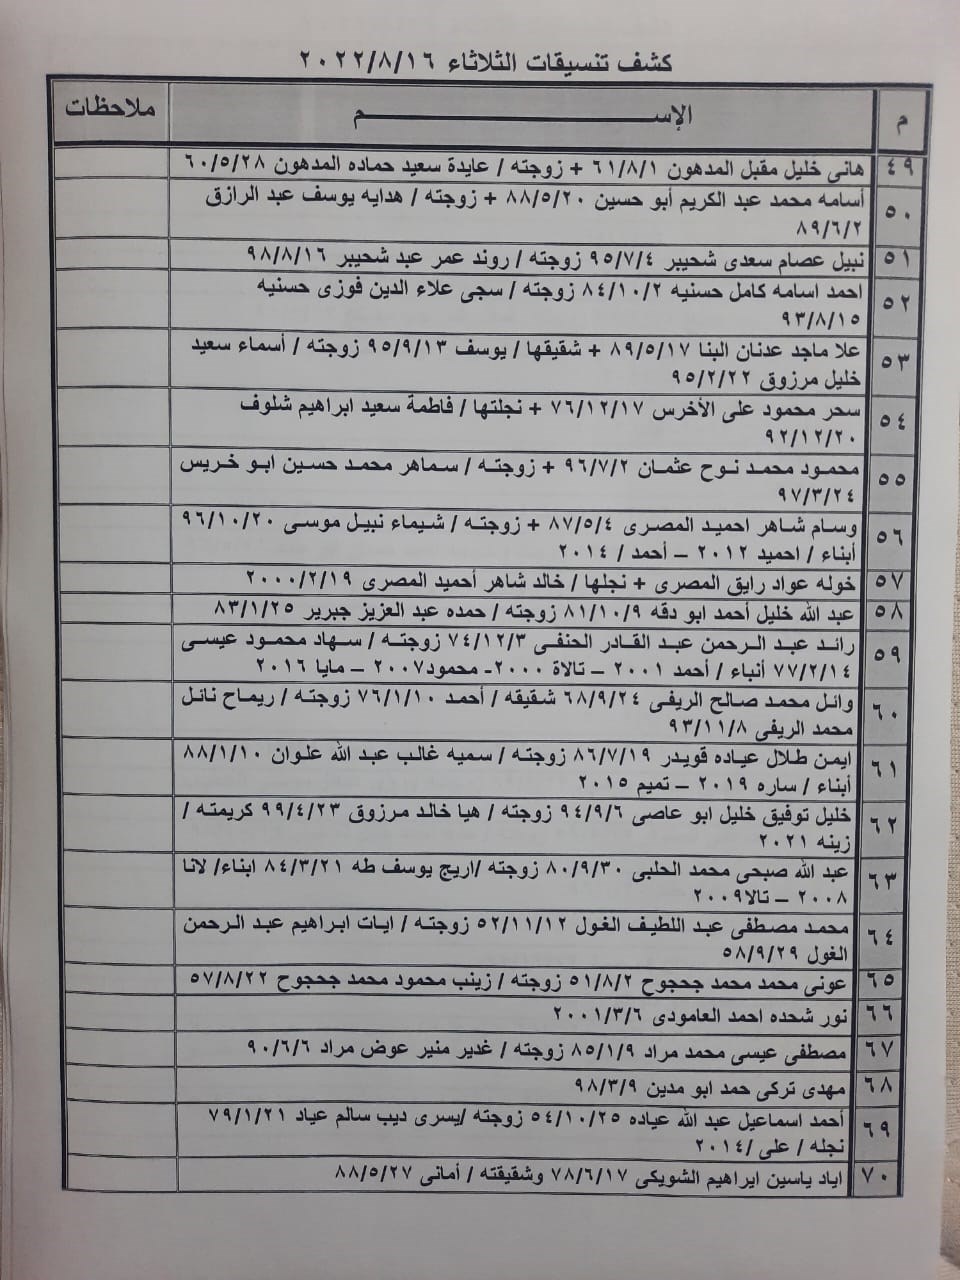 كشف تنسيقات الثلاثاء ٢٠٢٢/٨/١٦
م الإســـم ملاحظات
٤٩ هانى خليل مقبل المدهون ٦١/٨/١ + زوجته / عايدة سعيد حماده المدهون ٦٠/٥/٢٨
٥٠ أسامه محمد عبد الكريم أبو حسين ٨٨/٥/٢٠ + زوجته / هدايه يوسف عبد الرازق
٨٩/٦/٢
٥١ نبيل عصام سعدى شحيبر ٩٥/٧/٤ زوجته / روند عمر عبد شحيبر ٩٨/٨/١٦
٥٢ احمد اسامه كامل حسنيه ٨٤/١٠/٢ زوجته / سجى علاء الدين فوزى حسنيه
٩٣/٨/١٥
٥٣ علا ماجد عدنان البنا ٨٩/٥/١٧ + شقيقها / يوسف ٩٥/٩/١٣ زوجته / أسماء سعيد
خليل مرزوق ٩٥/٢/٢٢
٥٤ سحر محمود على الأخرس ٧٦/١٢/١٧ + نجلتها / فاطمة سعيد ابراهيم شلوف
٩٢/١٢/٢٠
٥٥ محمود محمد نوح عثمان ٩٦/٧/٢ + زوجته / سماهر محمد حسين ابو خريس
٩٧/٣/٢٤
٥٦ وسام شاهر احميد المصرى ٨٧/٥/٤ + زوجته / شيماء نبيل موسى ٩٦/١٠/٢٠
أبناء / احميد ٢٠١٢ – أحمد / ٢٠١٤
٥٧ خوله عواد رايق المصرى + نجلها / خالد شاهر أحميد المصرى ٢٠٠٠/٢/١٩
٥٨ عبد الله خليل أحمد ابو دقه ٨١/١٠/٩ زوجته / حمده عبد العزيز جبرير ٨٣/١/٢٥
٥٩ رائد عبد الرحمن عبد القادر الحنفى ٧٤/١٢/٣ زوجته / سهاد محمود عيسى
٧٧/٢/١٤ أنباء / أحمد ٢٠٠١ – تالاة ٢٠٠٠- محمود٢٠٠٧ – مايا ٢٠١٦
٦٠ وائل محمد صالح الريفى ٦٨/٩/٢٤ شقيقه / أحمد ٧٦/١/١٠ زوجته / ريماح نائل
محمد الريفى ٩٣/١١/٨
٦١ ايمن طلال عياده قويدر ٨٦/٧/١٩ زوجته / سميه غالب عبد الله علوان ٨٨/١/١٠
أبناء / ساره ٢٠١٩ – تميم ٢٠١٥
٦٢ خليل توفيق خليل ابو عاصى ٩٤/٩/٦ زوجته / هيا خالد مرزوق ٩٩/٤/٢٣ كريمته /
زينه ٢٠٢١
٦٣ عبد الله صبحى محمد الحلبى ٨٠/٩/٣٠ زوجته /اريج يوسف طه ٨٤/٣/٢١ ابناء/ لانا
٢٠٠٨ – تالا٢٠٠٩
٦٤ محمد مصطفى عبد اللطيف الغول ٥٢/١١/١٢ زوجته / ايات ابراهيم عبد الرحمن
الغول ٥٨/٩/٢٩
٦٥ عونى محمد محمد جحجوح ٥١/٨/٢ زوجته / زينب محمود محمد جحجوح ٥٧/٨/٢٢
٦٦ نور شحده احمد العامودى ٢٠٠١/٣/٦
٦٧ مصطفى عيسى محمد مراد ٨٥/١/٩ زوجته / غدير منير عوض مراد ٩٠/٦/٦
٦٨ مهدى تركى حمد ابو مدين ٩٨/٣/٩
٦٩ أحمد اسماعيل عبد الله عياده ٥٤/١٠/٢٥ زوجته /يسرى ديب سالم عياد ٧٩/١/٢١
نجله / على /٢٠١٤
٧٠ اياد ياسين ابراهيم الشويكى ٧٨/٦/١٧ وشقيقته / أمانى ٨٨/٥/٢٧